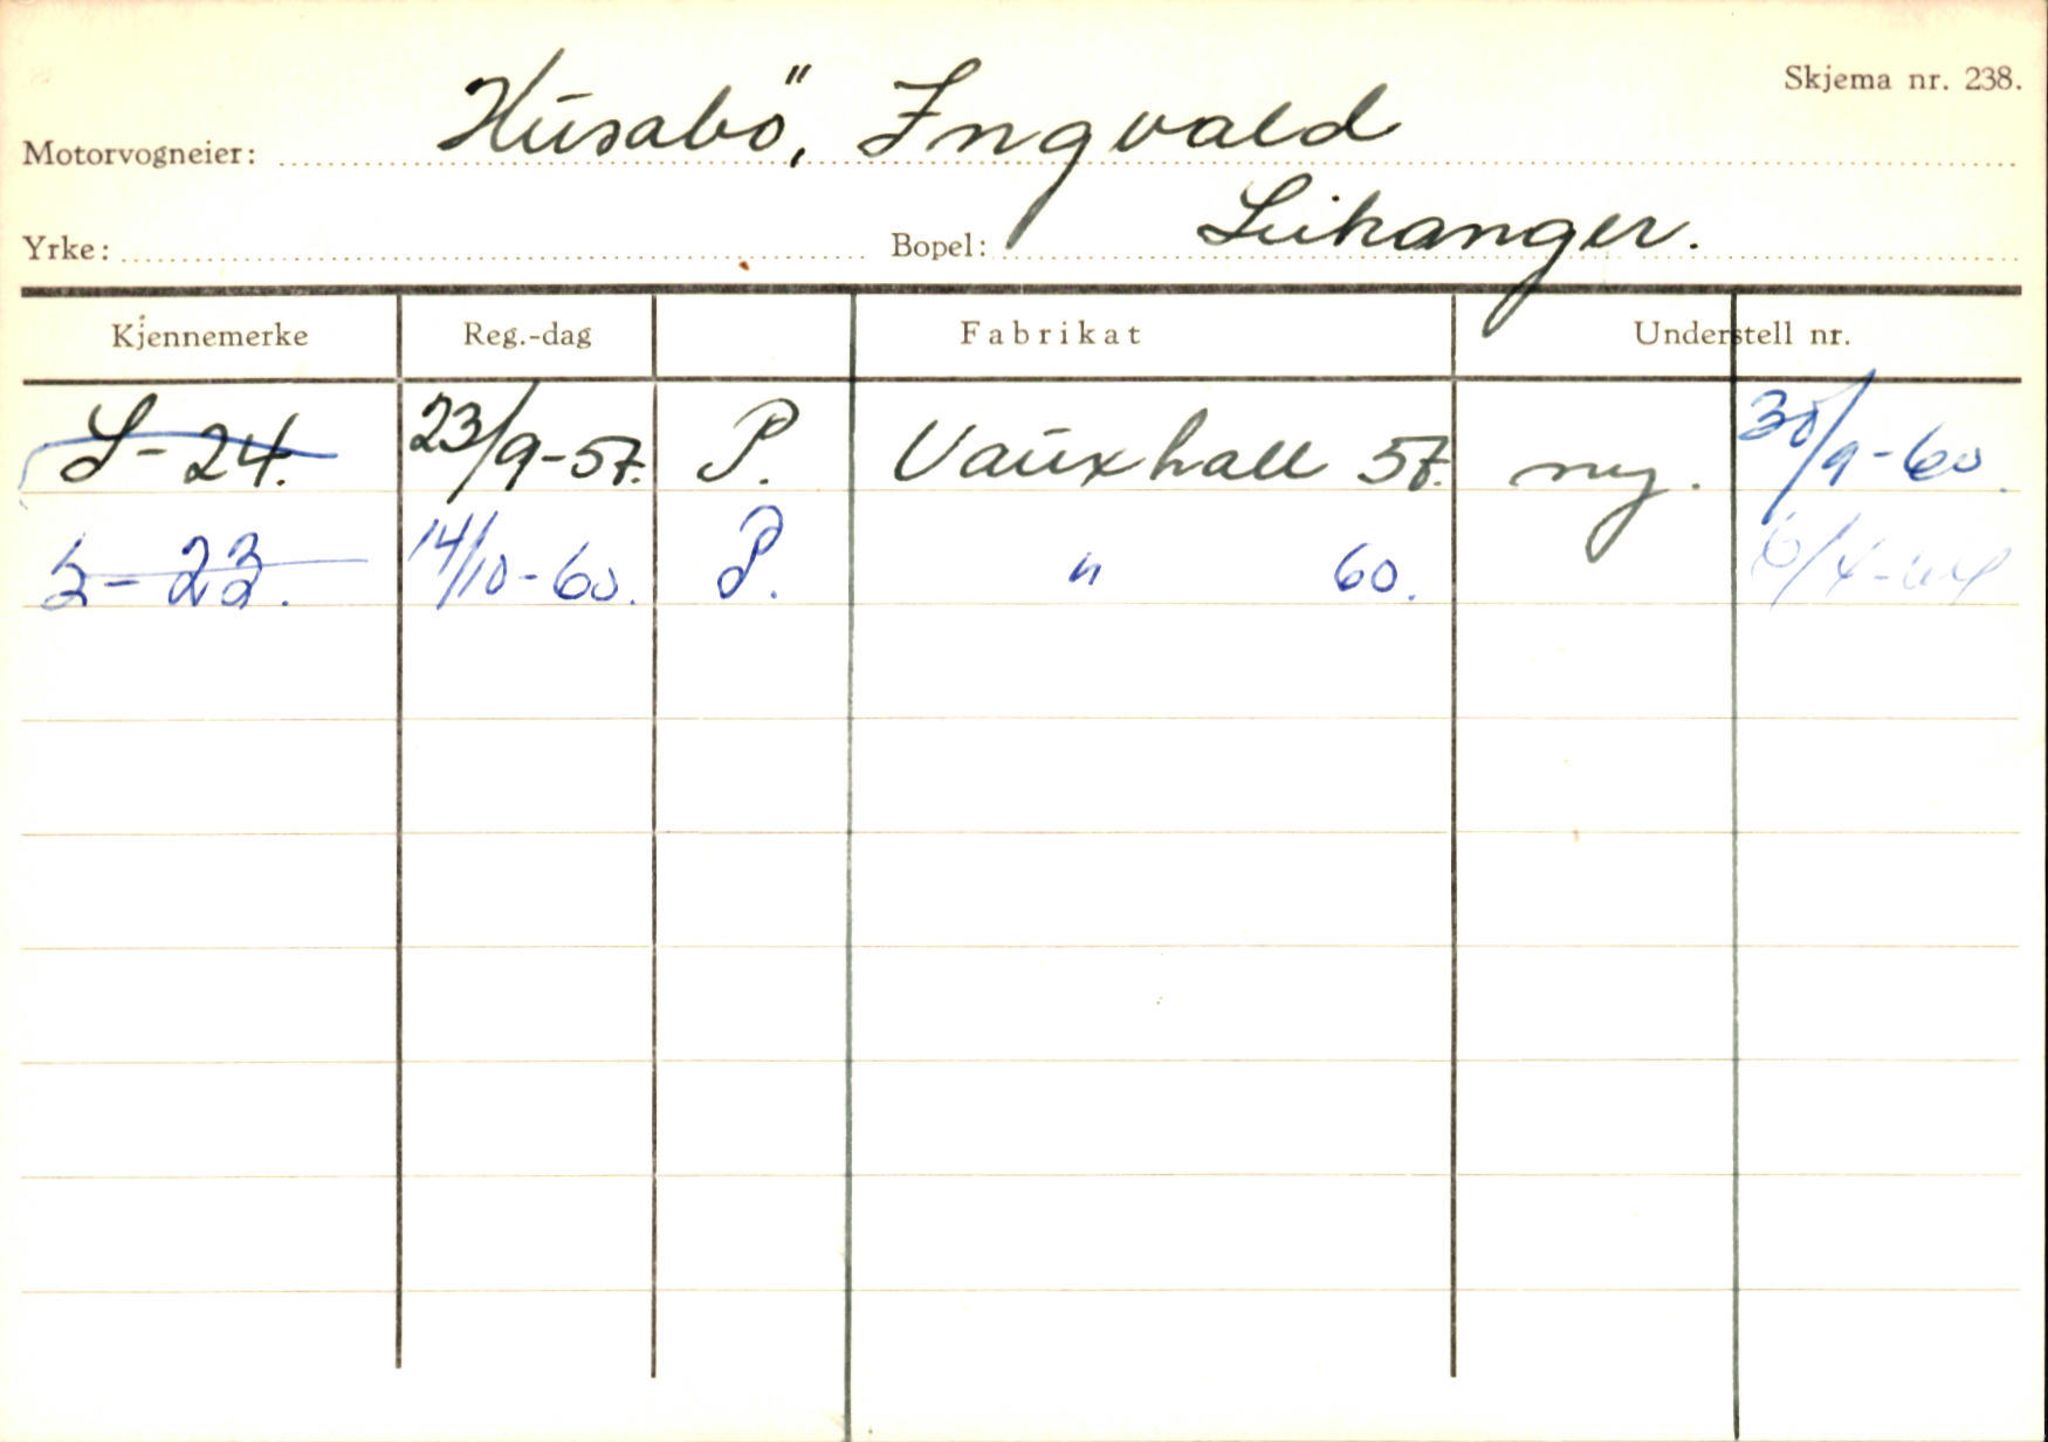 Skjema nr. 238.
Motorvogneier: Husabö, Ingvald
Yrke: Bopel: Leikanger.
Kjennemerke Reg.-dag Fabrikat Understell nr.
S-24. 23/9-57. P. Vauxhall 57. ny. 30/9-60.
S-23. 14/10-60. P. " 60. 6/4-64